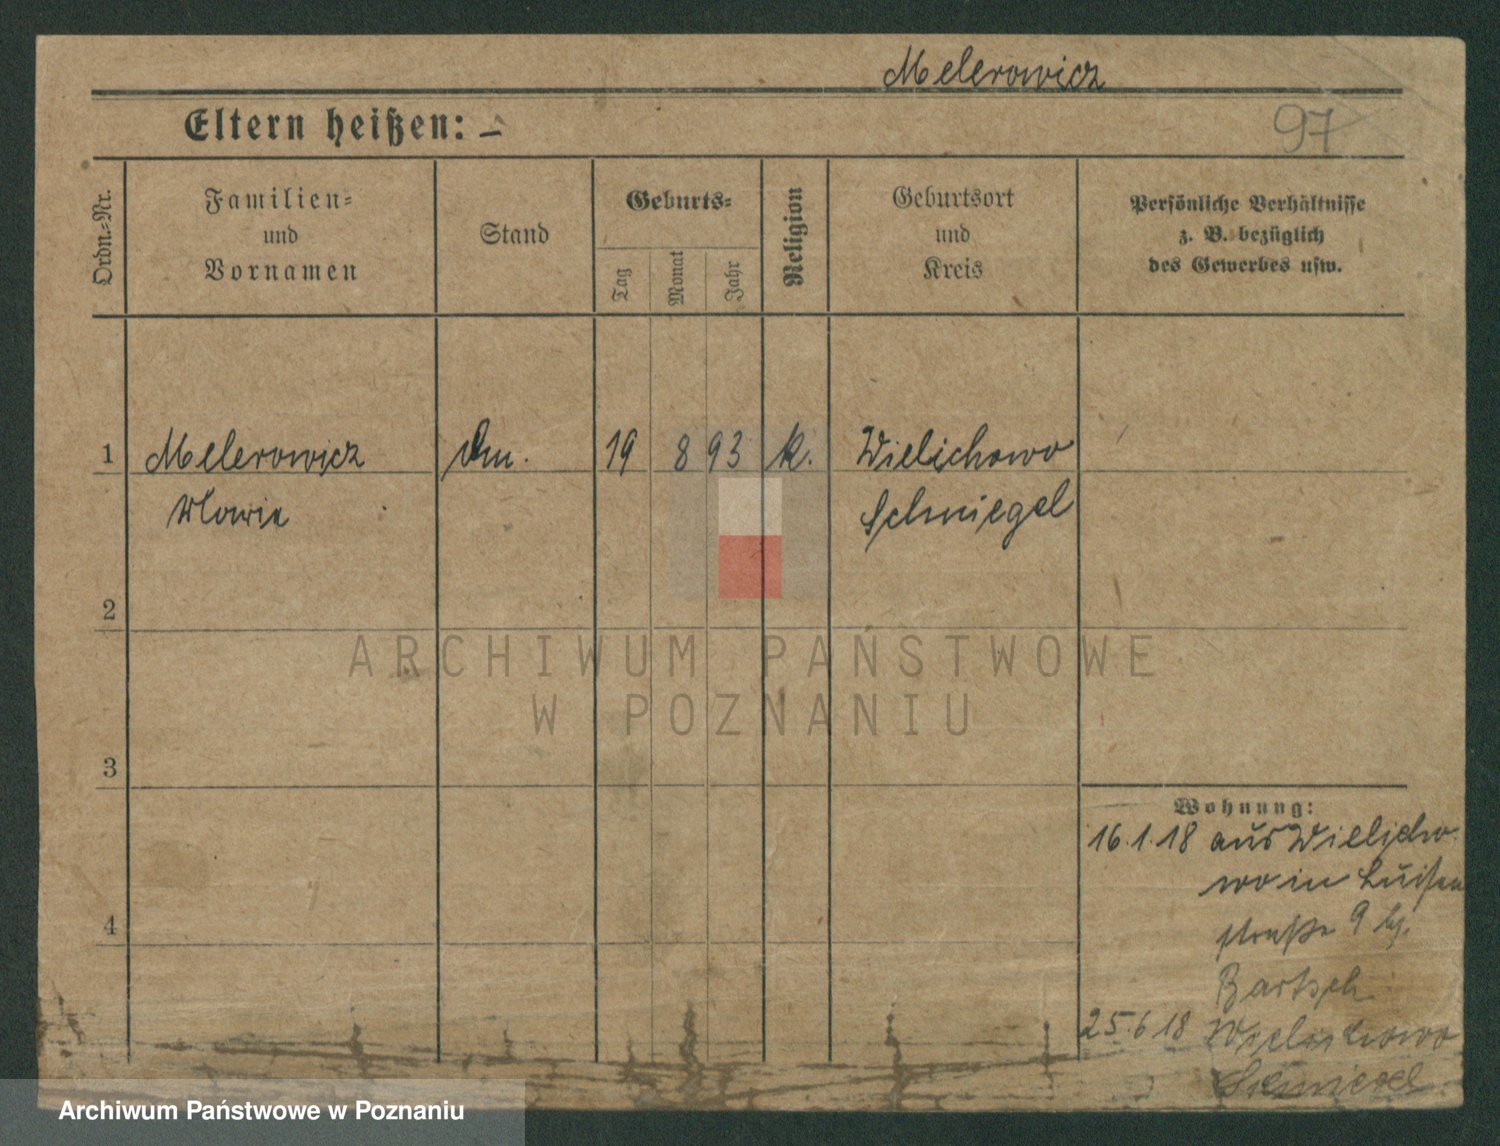 Melerowicz
Eltern heißen: –
97
Ordn.=Nr.
Familien=
und
Vornamen
Stand
Geburts=
Tag
Monat
Jahr
Religion
Geburtsort
und
Kreis
Persönliche Verhältnisse
z. B. bezüglich
des Gewerbes usw.
1 Melerowicz 19 8 93 k. Wielichowo
Marie Schmiegel
2
ARCHIWUM PAŃSTWOWE
W POZNANIU
3
Wohnung:
16.1.18 aus Wielicho
wo in Luisen
4
straße 9 bj.
Bartsch
25.6.18 Wielichowo
Schmiegel
Archiwum Państwowe w Poznaniu